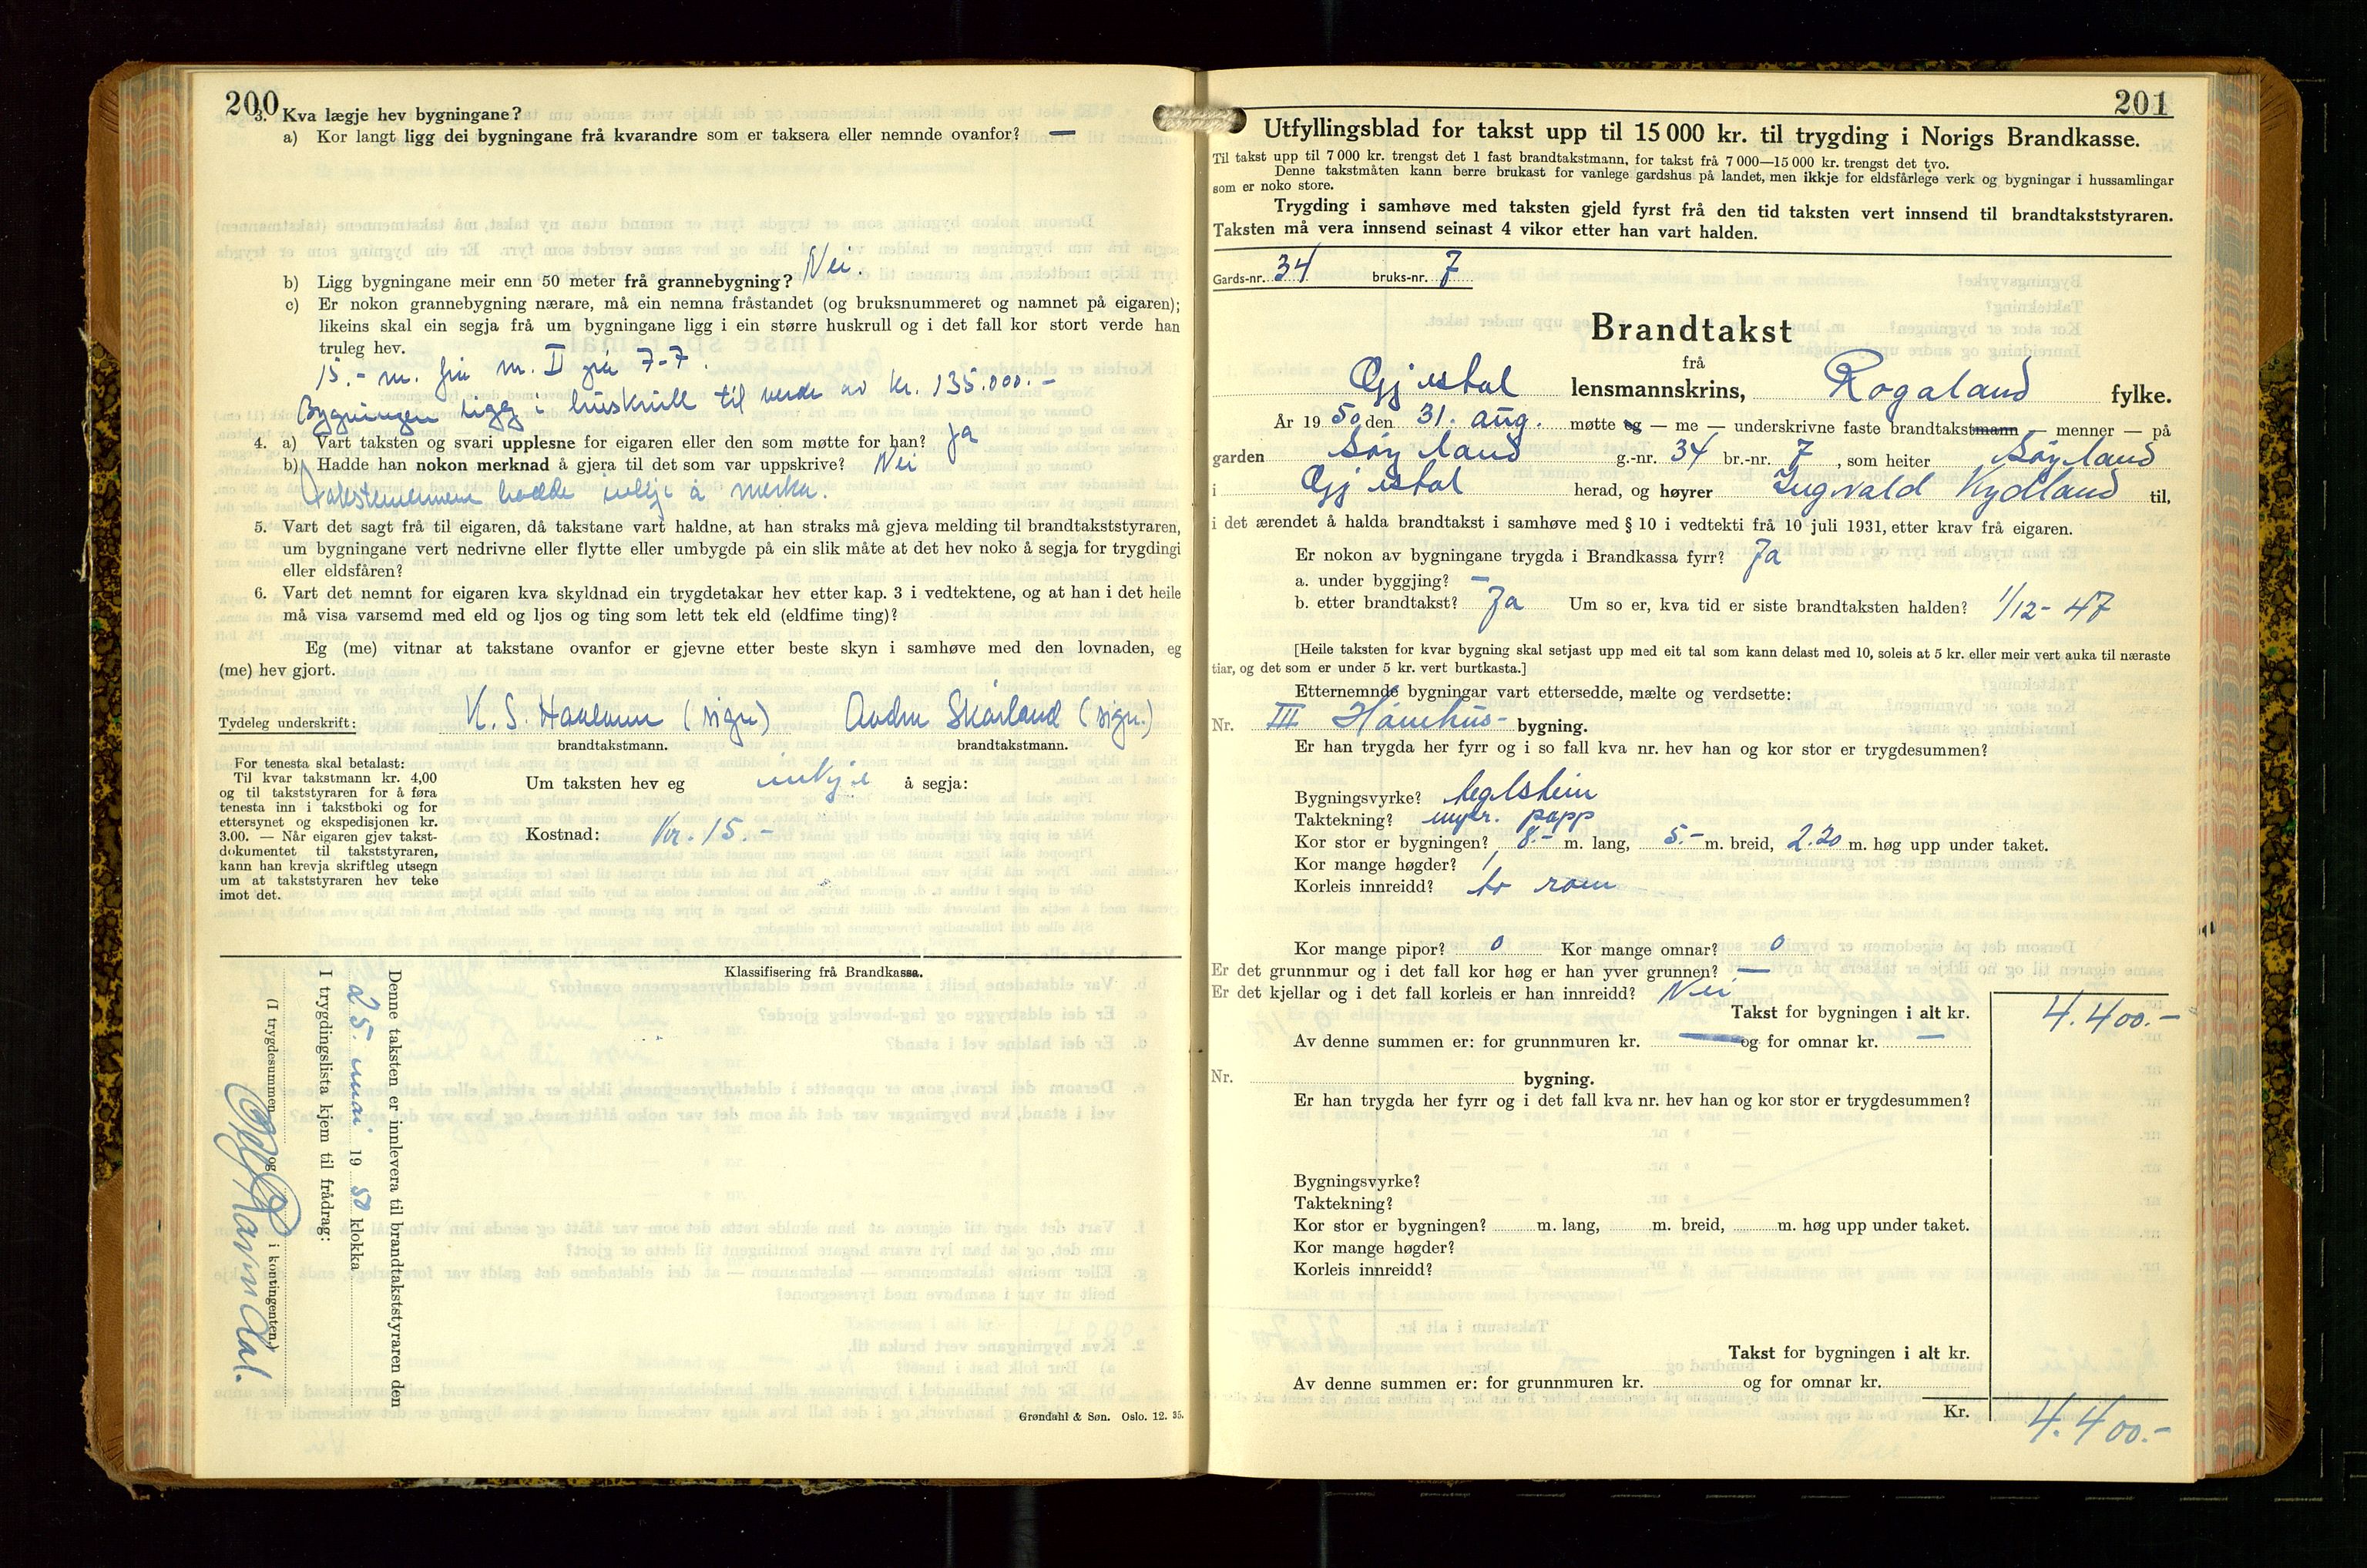 200
3. Kva lægje hev bygningane?
a) Kor langt ligg dei bygningane frå kvarandre som er taksera eller nemnde ovanfor? —
b) Ligg bygningane meir enn 50 meter frå grannebygning? Nei.
c) Er nokon grannebygning nærare, må ein nemna fråstandet (og bruksnummeret og namnet på eigaren);
likeins skal ein segja frå um bygningane ligg i ein større huskrull og i det fall kor stort verde han
truleg hev.
15.- m. frå nr. II frå 7-7.
Bygningen ligg i huskrull til verde av kr. 135.000.-
4. a) Vart taksten og svari upplesne for eigaren eller den som møtte for han? Ja
b) Hadde han nokon merknad å gjera til det som var uppskrive? Nei
Takstmennene hadde inkje å merka.
5. Vart det sagt frå til eigaren, då takstane vart haldne, at han straks må gjeva melding til brandtakststyraren,
um bygningane vert nedrivne eller flytte eller umbygde på ein slik måte at det hev noko å segja for trygdingi
eller eldsfåren?
6. Vart det nemnt for eigaren kva skyldnad ein trygdetakar hev etter kap. 3 i vedtektene, og at han i det heile
må visa varsemd med eld og ljos og ting som lett tek eld (eldfime ting)?
Eg (me) vitnar at takstane ovanfor er gjevne etter beste skyn i samhøve med den lovnaden, eg
(me) hev gjort.
Tydeleg underskrift: K. S. Haaland (sign) Skårland (sign.)
brandtakstmann. brandtakstmann.
For tenesta skal betalast:
Til kvar takstmann kr. 4,00
og til takststyraren for å føra
tenesta inn i takstboki og for
ettersynet og ekspedisjonen kr.
3.00. — Når eigaren gjev takst-
dokumentet til takststyraren,
kann han krevja skriftleg utsegn
um at takststyraren hev teke
imot det.
Um taksten hev eg inkje å segja:
Kostnad: Kr. 15.-
Klassifisering frå Brandkassa.
Denne taksten er innlevera til brandtakststyraren den
25. mai 19 50 klokka
I trygdingslista kjem til frådrag:
(I trygdesummen og i kontingenten)
Grøndahl & Søn. Oslo. 12. 35.
201
Utfyllingsblad for takst upp til 15 000 kr. til trygding i Norigs Brandkasse.
Til takst upp til 7 000 kr. trengst det 1 fast brandtakstmann, for takst frå 7 000—15 000 kr. trengst det tvo.
Denne takstmåten kann berre brukast for vanlege gardshus på landet, men ikkje for eldsfårlege verk og bygningar i hussamlingar
som er noko store.
Trygding i samhøve med taksten gjeld fyrst frå den tid taksten vert innsend til brandtakststyraren.
Taksten må vera innsend seinast 4 vikor etter han vart halden.
Gards-nr. 34 bruks-nr. 7
Brandtakst
frå
Gjestal lensmannskrins, Rogaland fylke.
År 19 50 den 31. aug. møtte eg — me — underskrivne faste brandtakstmann — menner — på
garden Søyland g.-nr. 34 br.-nr. 7, som heiter Søyland
i Gjestal herad, og høyrer Ingvald Kydland til,
i det ærendet å halda brandtakst i samhøve med § 10 i vedtekti frå 10 juli 1931, etter krav frå eigaren.
Er nokon av bygningane trygda i Brandkassa fyrr? Ja
a. under byggjing? —
b. etter brandtakst? Ja Um so er, kva tid er siste brandtaksten halden? 1/12-47
[Heile taksten for kvar bygning skal setjast upp med eit tal som kann delast med 10, soleis at 5 kr. eller meir vert auka til næraste
tiar, og det som er under 5 kr. vert burtkasta.]
Etternemnde bygningar vart ettersedde, mælte og verdsette:
Nr. III Hønehus- bygning.
Er han trygda her fyrr og i so fall kva nr. hev han og kor stor er trygdesummen?
Bygningsvyrke? teglstein
Taktekning? papp
Kor stor er bygningen? 8.- m. lang, 5.- m. breid, 2.20 m. høg upp under taket.
Kor mange høgder? 1
Korleis innreidd? to rom
Kor mange pipor? 0 Kor mange omnar? 0
Er det grunnmur og i det fall kor høg er han yver grunnen? —
Er det kjellar og i det fall korleis er han innreidd? Nei
Takst for bygningen i alt kr. 4.400.-
Av denne summen er: for grunnmuren kr. — og for omnar kr. —
Nr. bygning.
Er han trygda her fyrr og i det fall kva nr. hev han og kor stor er trygdesummen?
Bygningsvyrke?
Taktekning?
Kor stor er bygningen? m. lang, m. breid, m. høg upp under taket.
Kor mange høgder?
Korleis innreidd?
Takst for bygningen i alt kr.
Av denne summen er: for grunnmuren kr. og for omnar kr.
Kr. 4.400.-